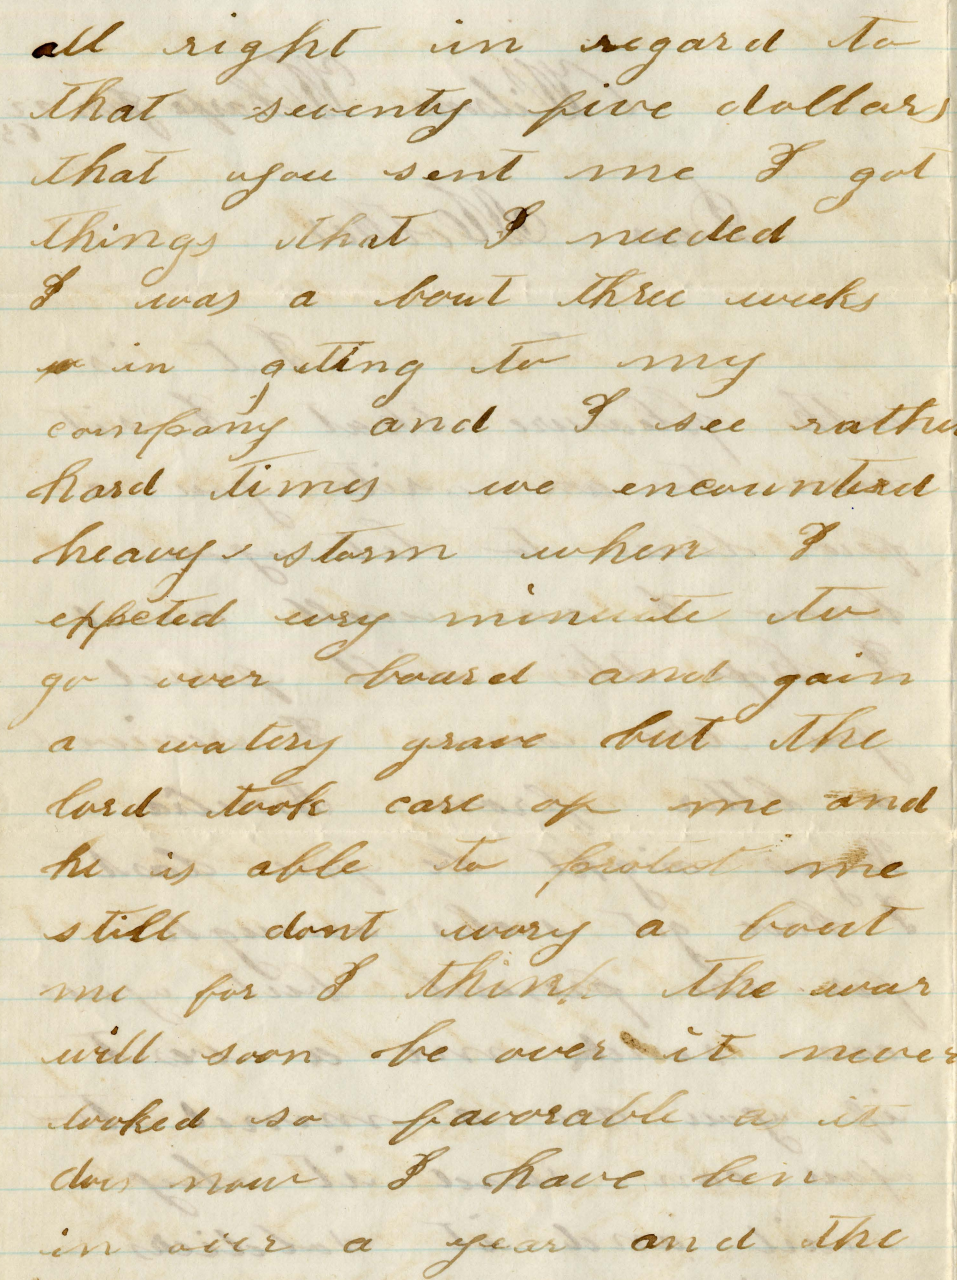 all right in regard to
that seventy five dollars
that you sent me I got
things that I needed
I was a bout three weeks
in geting to my
company and I see rather
hard times we encounterd
heavy storm when I
expeted evry minuite to
go over board and gain
a watery grave but the
lord took care of me and
he is able to protect me
still dont wory a bout
me for I think the war
will soon be over it never
looked so favorable a it
does now I have ben
in over a year and the